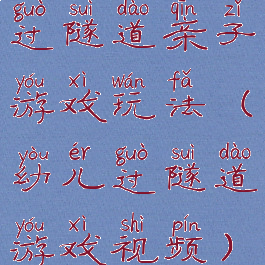 guò suì dào qīn zǐ
过隧道亲子
yóu xì wán fǎ
游戏玩法（
yòu ér guò suì dào
幼儿过隧道
yóu xì shì pín
游戏视频）